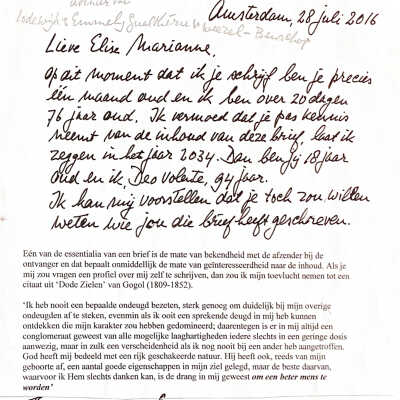 Amsterdam, 28 juli 2016
Lodewijk & Emmely
Lieve Elise Marianne,
Op dit moment dat ik je schrijf ben je precies
één maand oud en ik ben over 20 dagen
76 jaar oud. Ik vermoed dat je pas kennis
neemt van de inhoud van deze brief, laat ik
zeggen in het jaar 2034. Dan ben jij 18 jaar
oud en ik, Deo Volente, 94 jaar.
Ik kan mij voorstellen dat je toch zou willen
weten wie jou die brief heeft geschreven.
Eén van de essentialia van een brief is de mate van bekendheid met de afzender bij de
ontvanger en dat bepaalt onmiddellijk de mate van geïnteresseerdheid naar de inhoud. Als je
mij zou vragen een profiel over mij zelf te schrijven, dan zou ik mijn toevlucht nemen tot een
citaat uit 'Dode Zielen' van Gogol (1809-1852).
'Ik heb nooit een bepaalde ondeugd bezeten, sterk genoeg om duidelijk bij mijn overige
ondeugden af te steken, evenmin als ik ooit een sprekende deugd in mij heb kunnen
ontdekken die mijn karakter zou hebben gedomineerd; daarentegen is er in mij altijd een
conglomeraat geweest van alle mogelijke laaghartigheden iedere slechts in een geringe dosis
aanwezig, maar in zulk een verscheidenheid als ik nog nooit bij een ander heb aangetroffen.
God heeft mij bedeeld met een rijk geschakeerde natuur. Hij heeft ook, reeds van mijn
geboorte af, een aantal goede eigenschappen in mijn ziel gelegd, maar de beste daarvan,
waarvoor ik Hem slechts danken kan, is de drang in mij geweest om een beter mens te
worden'